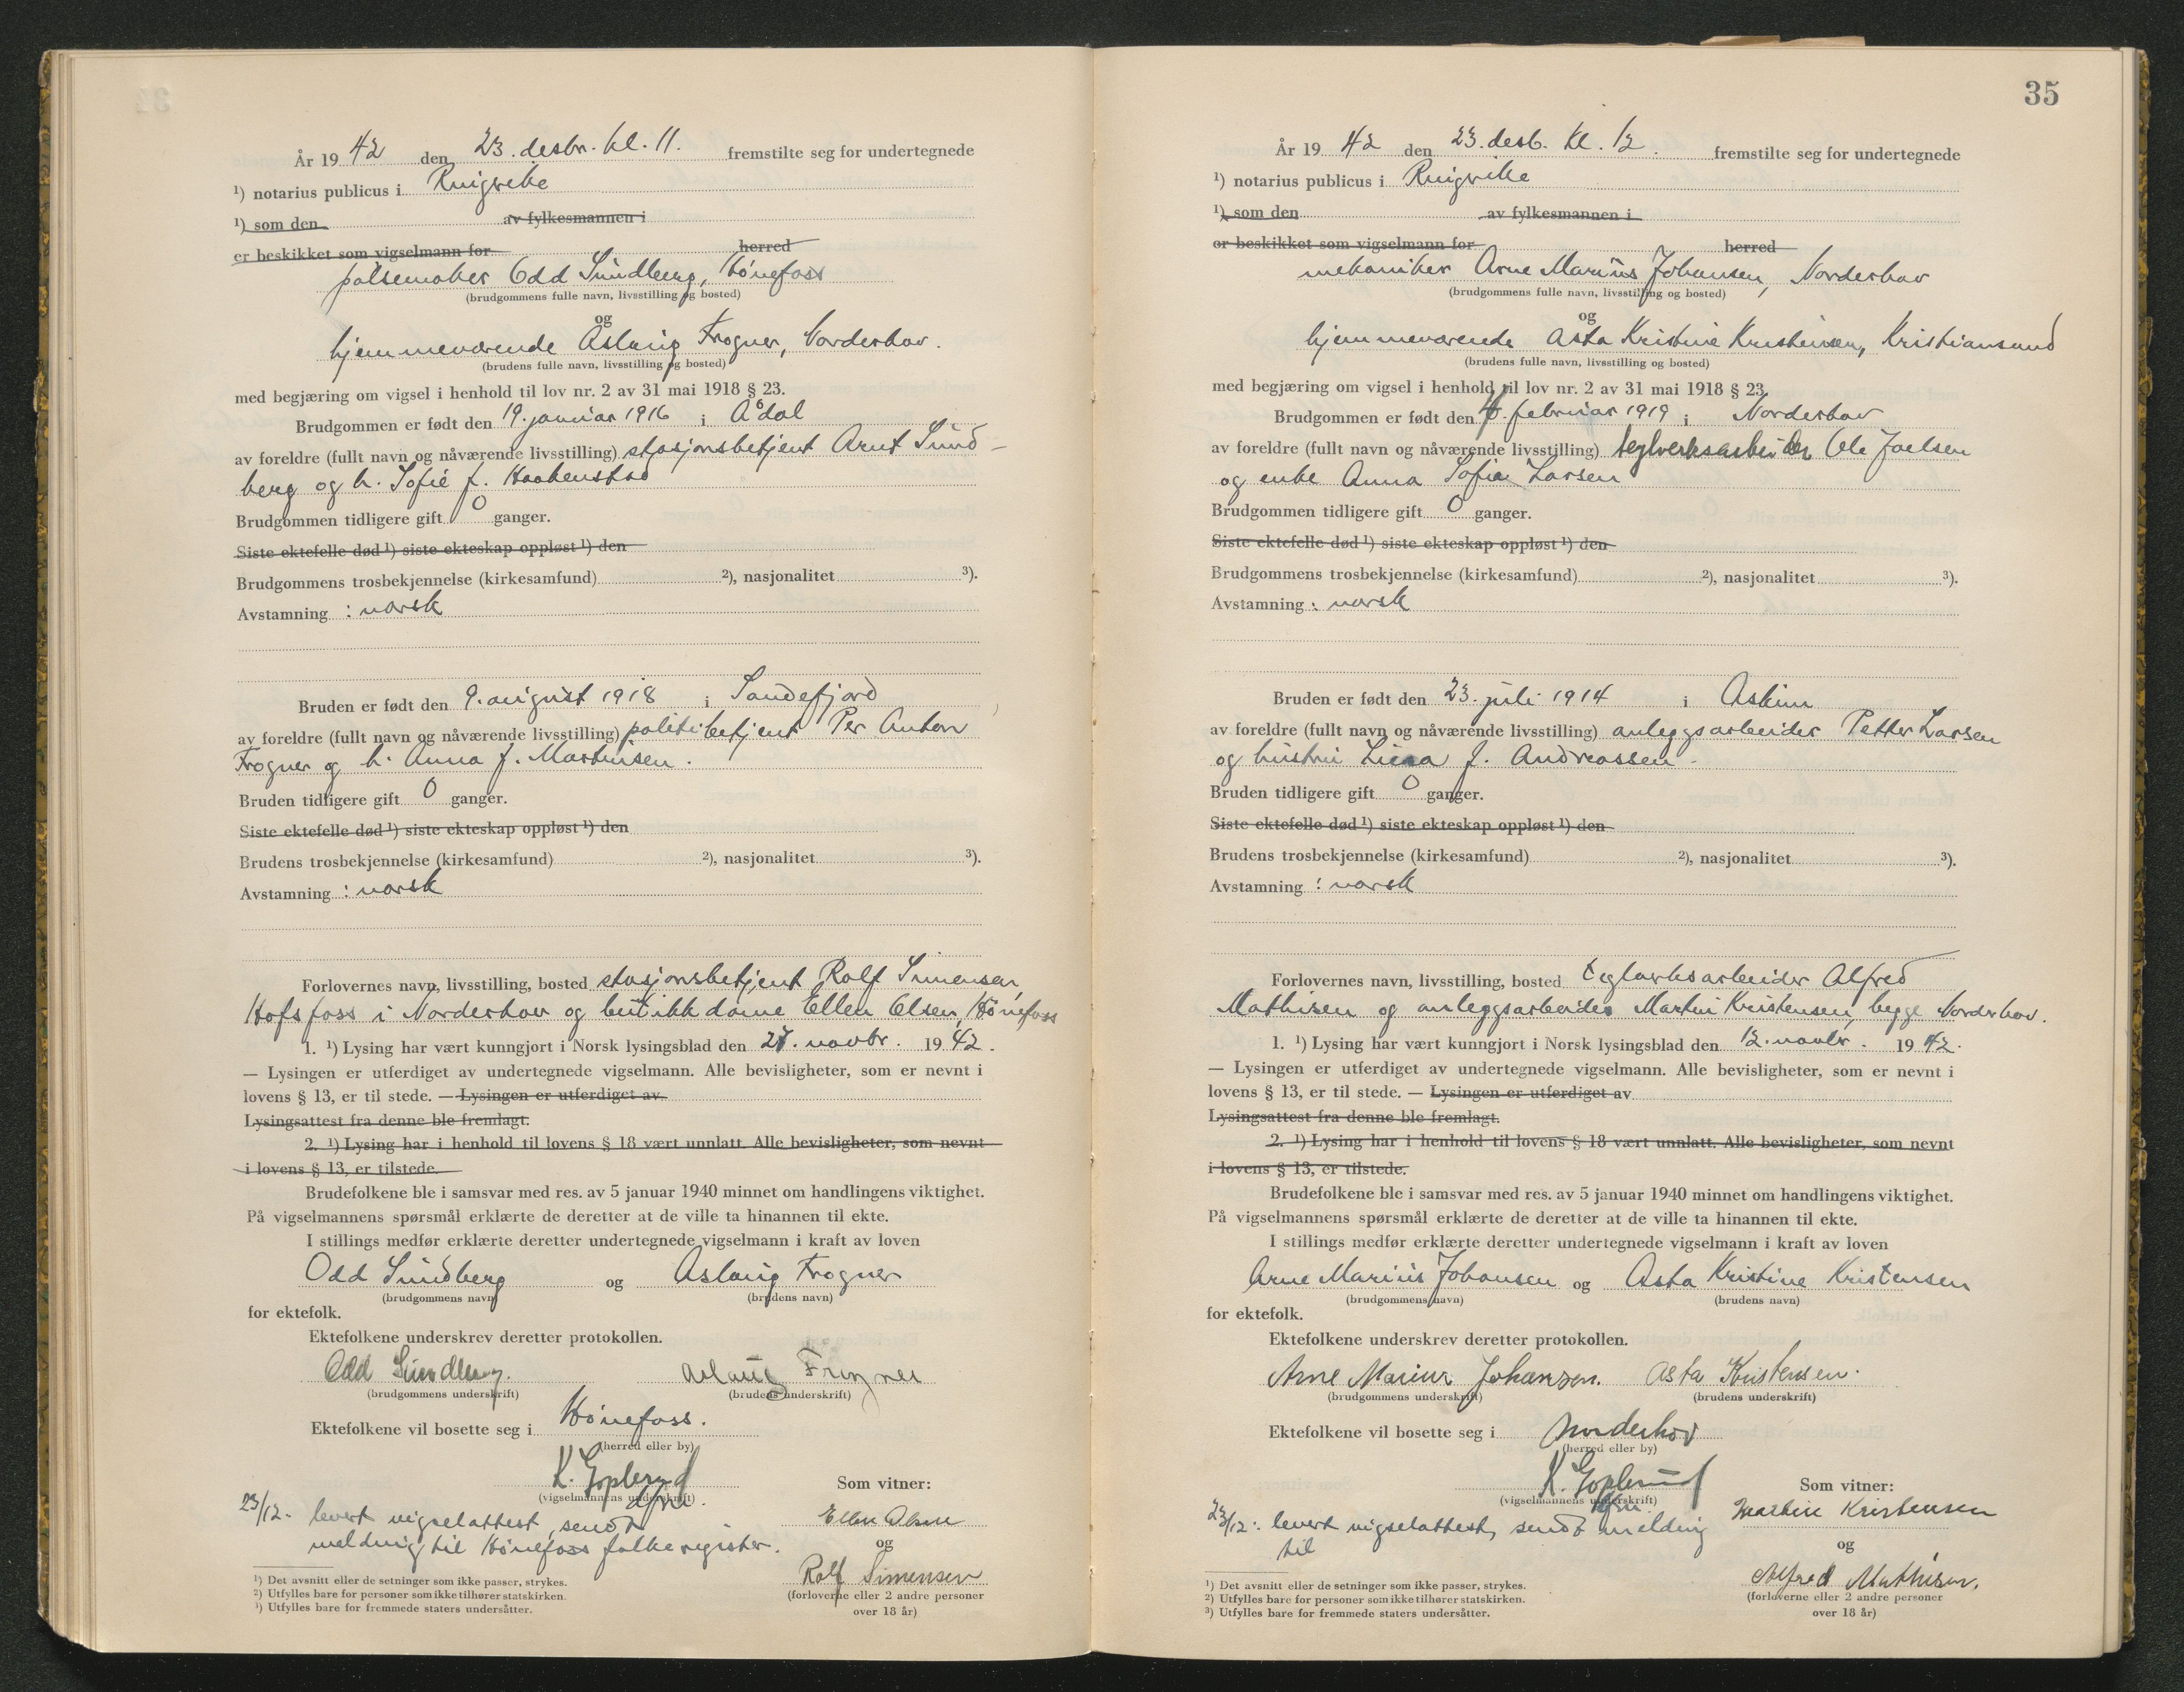 År 19 42 den 23. desbr. kl. 11. fremstilte seg for undertegnede
¹) notarius publicus i Ringerike
¹) som den av fylkesmannen i
er beskikket som vigselmann for herred
pølsemaker Odd Sundberg, Hönefoss
(brudgommens fulle navn, livsstilling og bosted)
og
hjemmeværende Aslaug Frogner, Norderhov.
(brudens fulle navn, livsstilling og bosted)
med begjæring om vigsel i henhold til lov nr. 2 av 31 mai 1918 § 23.
Brudgommen er født den 19. januar 1916 i Ådal
av foreldre (fullt navn og nåværende livsstilling) stasjonsbetjent Arnt Sund-
berg og h. Sofie f. Haakenstad
Brudgommen tidligere gift 0 ganger.
Siste ektefelle død ¹) siste ekteskap oppløst ¹) den
Brudgommens trosbekjennelse (kirkesamfund) ²), nasjonalitet ³).
Avstamning : norsk
Bruden er født den 9. august 1918 i Sandefjord
av foreldre (fullt navn og nåværende livsstilling) politibetjent Per Anton
Frogner og h. Anna f. Martinsen.
Bruden tidligere gift 0 ganger.
Siste ektefelle død ¹) siste ekteskap oppløst ¹) den
Brudens trosbekjennelse (kirkesamfund) ²), nasjonalitet ³).
Avstamning : norsk
Forlovernes navn, livsstilling, bosted stasjonsbetjent Rolf Simensen,
Hofsfoss i Norderhov og butikkdame Ellen Olsen, Hönefoss
1. ¹) Lysing har vært kunngjort i Norsk lysingsblad den 27. novbr. 19 42.
— Lysingen er utferdiget av undertegnede vigselmann. Alle bevisligheter, som er nevnt i
lovens § 13, er til stede. — Lysingen er utferdiget av
Lysingsattest fra denne ble fremlagt.
2. ¹) Lysing har i henhold til lovens § 18 vært unnlatt. Alle bevisligheter, som nevnt
i lovens § 13, er tilstede.
Brudefolkene ble i samsvar med res. av 5 januar 1940 minnet om handlingens viktighet.
På vigselmannens spørsmål erklærte de deretter at de ville ta hinannen til ekte.
I stillings medfør erklærte deretter undertegnede vigselmann i kraft av loven
Odd Sundberg og Aslaug Frogner
(brudgommens navn) (brudens navn)
for ektefolk.
Ektefolkene underskrev deretter protokollen.
Odd Sundberg. Aslaug Frogner
(brudgommens underskrift) (brudens underskrift)
Ektefolkene vil bosette seg i Hönefoss.
(herred eller by)
K. Goplerud
(vigselmannens underskrift)
Som vitner:
23/12. levert vigselattest, sendt
melding til Hönefoss folkeregister.
Ellen Olsen
og
Rolf Simensen
(forloverne eller 2 andre personer
over 18 år)
¹) Det avsnitt eller de setninger som ikke passer, strykes.
²) Utfylles bare for personer som ikke tilhører statskirken.
³) Utfylles bare for fremmede staters undersåtter.
35
År 19 42 den 23. desb. kl. 12. fremstilte seg for undertegnede
¹) notarius publicus i Ringerike
¹) som den av fylkesmannen i
er beskikket som vigselmann for herred
mekaniker Arne Marius Johansen, Norderhov
(brudgommens fulle navn, livsstilling og bosted)
og
hjemmeværende Asta Kristine Kristensen, Kristiansund
(brudens fulle navn, livsstilling og bosted)
med begjæring om vigsel i henhold til lov nr. 2 av 31 mai 1918 § 23.
Brudgommen er født den februar 1919 i Norderhov
av foreldre (fullt navn og nåværende livsstilling) teglverksarbeider Ole Joelsen
og enke Anna Sofie Larsen
Brudgommen tidligere gift 0 ganger.
Siste ektefelle død ¹) siste ekteskap oppløst ¹) den
Brudgommens trosbekjennelse (kirkesamfund) ²), nasjonalitet ³).
Avstamning : norsk
Bruden er født den 23. juli 1914 i Askim
av foreldre (fullt navn og nåværende livsstilling) anleggsarbeider Petter Larsen
og hustru f. Andreassen.
Bruden tidligere gift 0 ganger.
Siste ektefelle død ¹) siste ekteskap oppløst ¹) den
Brudens trosbekjennelse (kirkesamfund) ²), nasjonalitet ³).
Avstamning : norsk
Forlovernes navn, livsstilling, bosted teglverksarbeider Alfred
Mathisen og anleggsarbeider Martin Kristensen, begge Norderhov.
1. ¹) Lysing har vært kunngjort i Norsk lysingsblad den 12. novbr. 19 42.
— Lysingen er utferdiget av undertegnede vigselmann. Alle bevisligheter, som er nevnt i
lovens § 13, er til stede. — Lysingen er utferdiget av
Lysingsattest fra denne ble fremlagt.
2. ¹) Lysing har i henhold til lovens § 18 vært unnlatt. Alle bevisligheter, som nevnt
i lovens § 13, er tilstede.
Brudefolkene ble i samsvar med res. av 5 januar 1940 minnet om handlingens viktighet.
På vigselmannens spørsmål erklærte de deretter at de ville ta hinannen til ekte.
I stillings medfør erklærte deretter undertegnede vigselmann i kraft av loven
Arne Marius Johansen og Asta Kristine Kristensen
(brudgommens navn) (brudens navn)
for ektefolk.
Ektefolkene underskrev deretter protokollen.
Arne Marius Johansen. Asta Kristensen.
(brudgommens underskrift) (brudens underskrift)
Ektefolkene vil bosette seg i Norderhov
(herred eller by)
K. Goplerud
(vigselmannens underskrift)
Som vitner:
23/12. levert vigselattest, sendt melding
til
Martin Kristensen
og
Alfred Mathisen.
(forloverne eller 2 andre personer
over 18 år)
¹) Det avsnitt eller de setninger som ikke passer, strykes.
²) Utfylles bare for personer som ikke tilhører statskirken.
³) Utfylles bare for fremmede staters undersåtter.